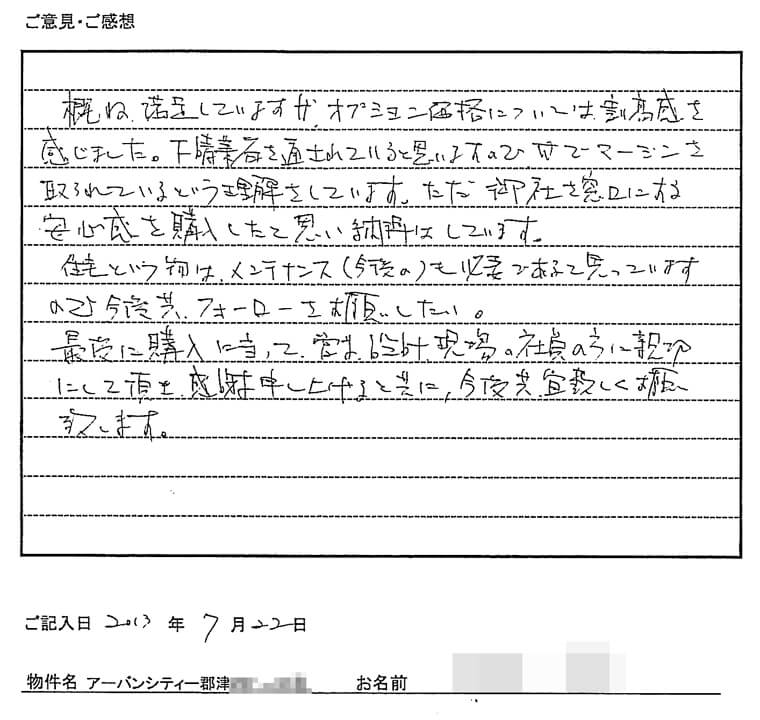 ご意見・ご感想
概ね、満足していますが、オプション価格については割高感を
感じました。下請業者を通されていると思いますので、マージンを
取られているという理解をしています。ただ御社を窓口にする
安心感を購入したと思い納得はしています。
住宅という物は、メンテナンス(今後の)も必要であると思っています
ので今後共、フォローをお願いしたい。
最後に購入に当って、営業、設計、現場の社員の方に親切
にして頂き、感謝申し上げると共に、今後共、宜敷しくお願い
致します。
ご記入日 2013 年 7 月 22 日
物件名 アーバンシティー郡津 お名前